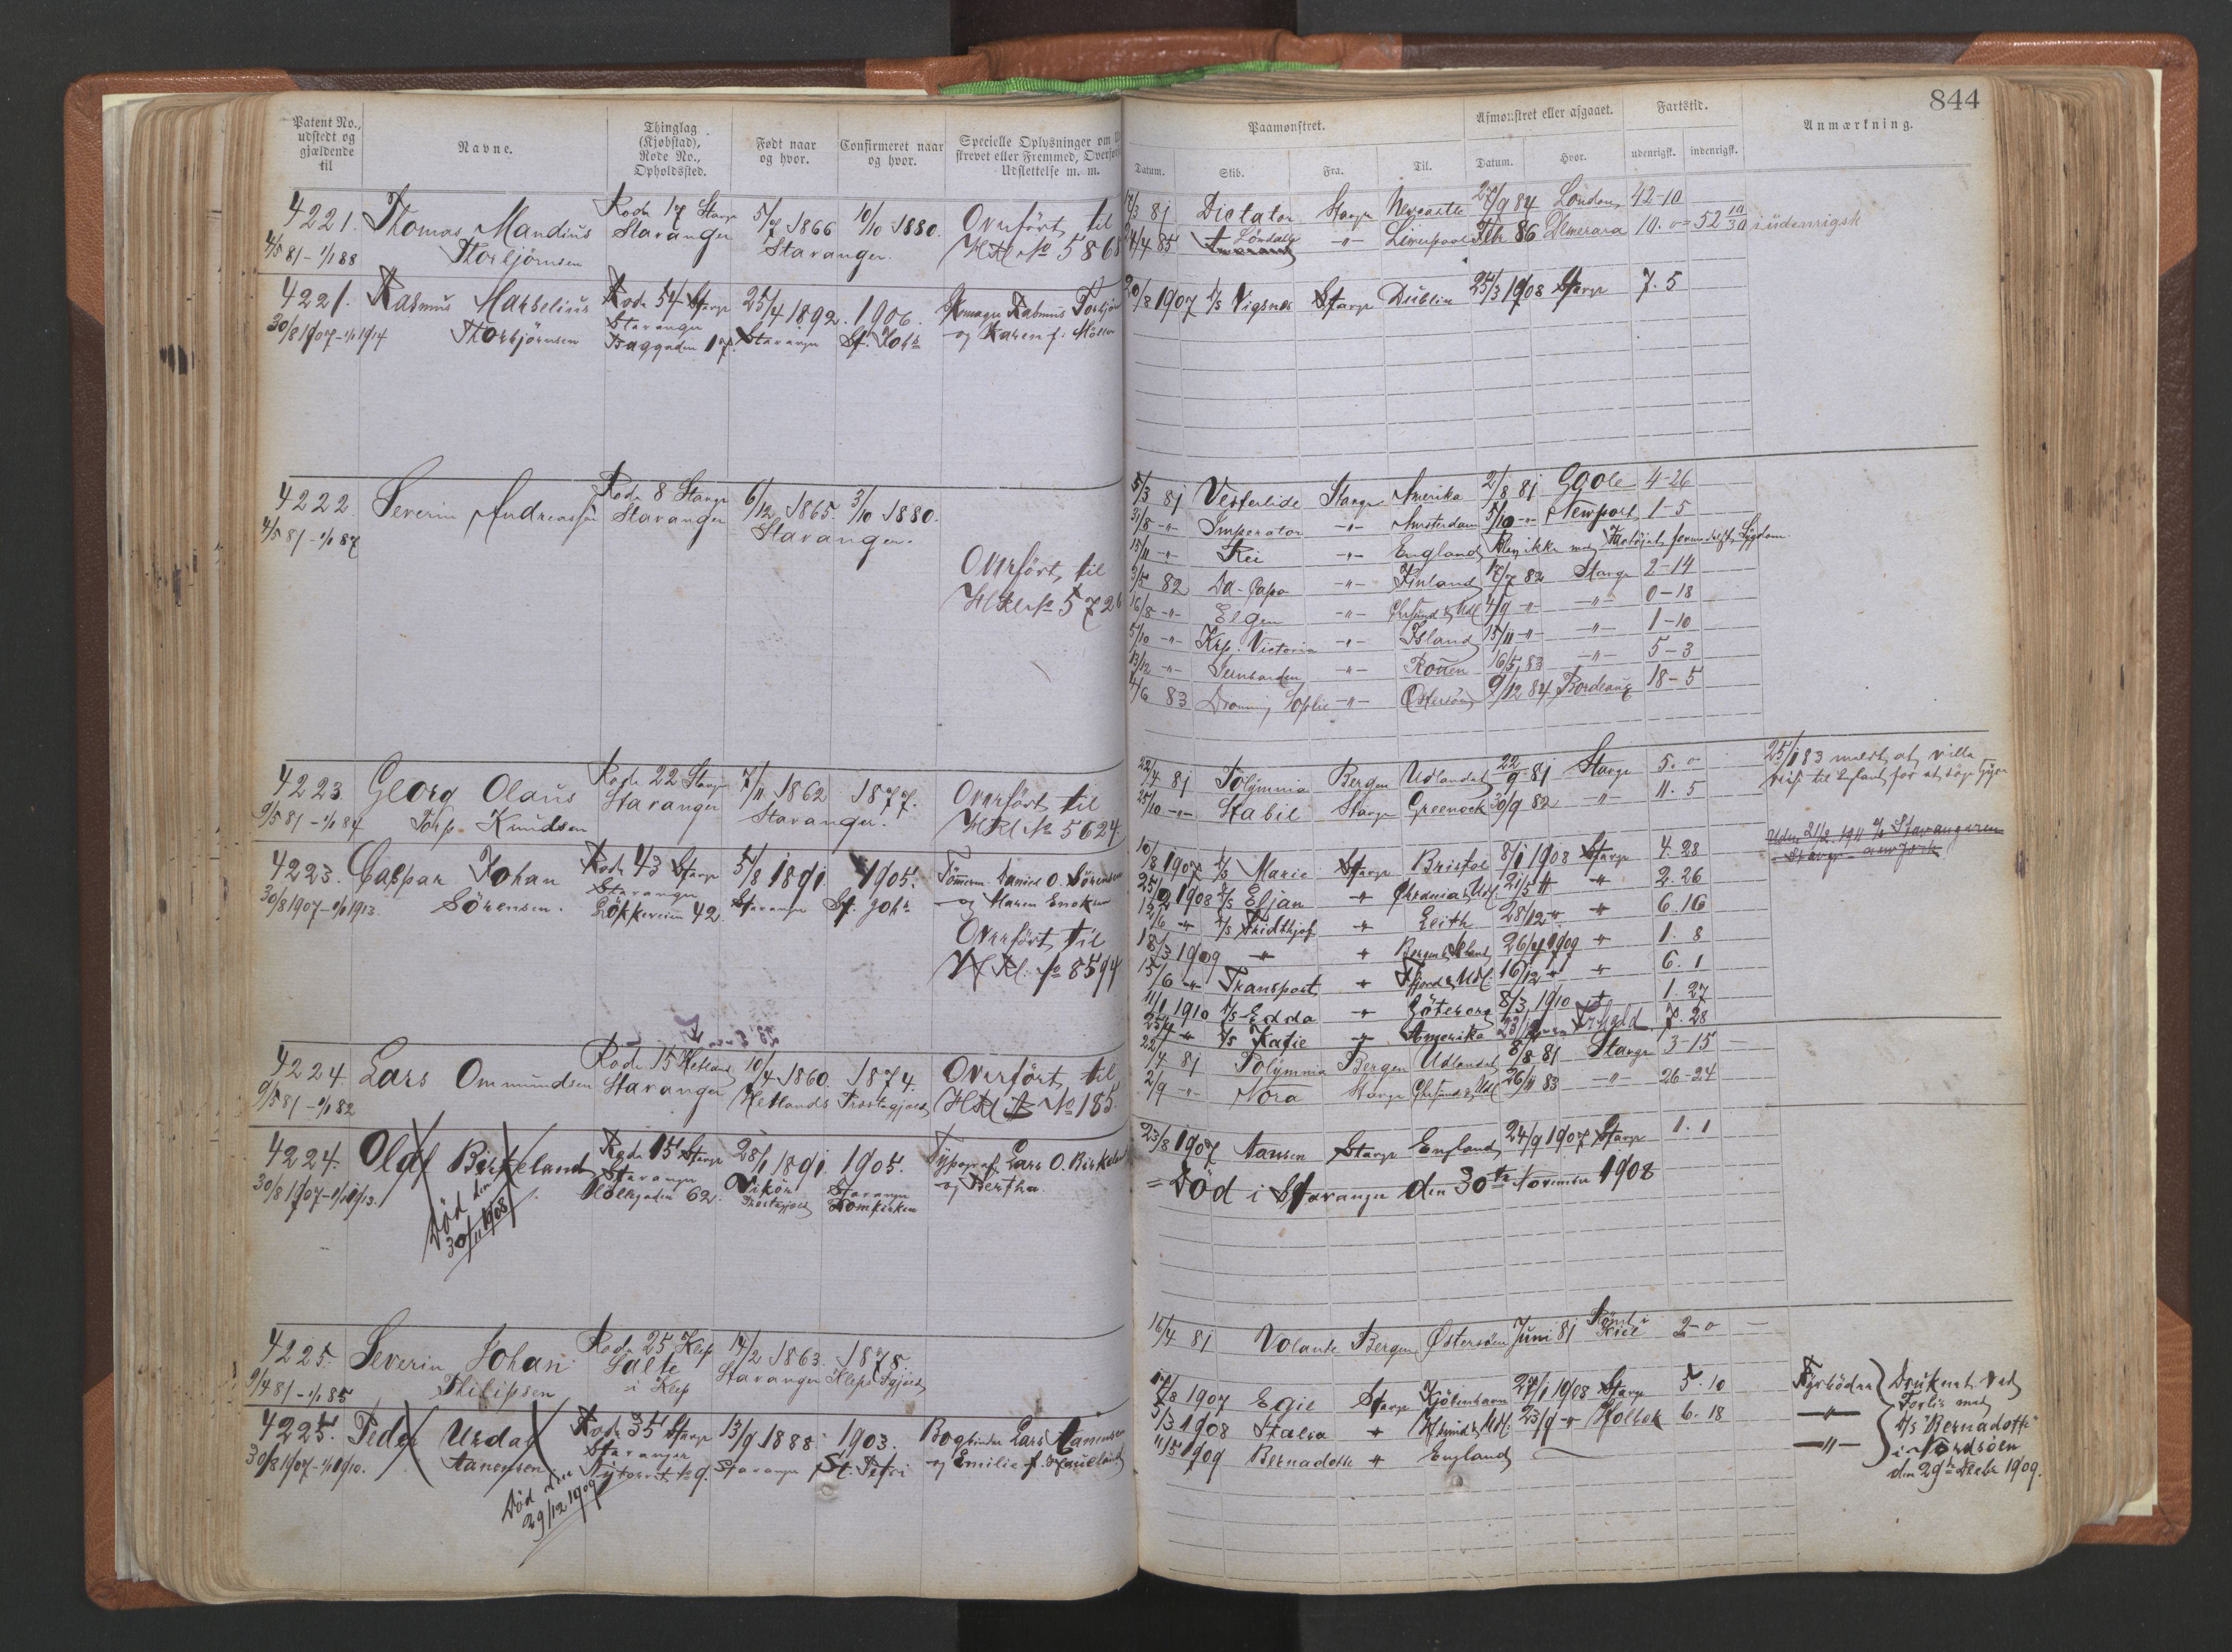 844
Patent No.,
udstedt og
gjældende
til
Navne.
Thinglag
(Kjøbstad),
Rode No.,
Opholdssted.
Født naar
og hvor.
Confirmeret naar
og hvor.
Specielle Oplysninger om
strevet eller Fremmed, Overført
Udslettelse m. m.
Paamønstret.
Afmønstret eller afgaaet.
Fartstid.
Anmærkning.
Datum.
Skib.
Fra.
Til.
Datum.
Hvor.
udenrigsk.
indenrigsk.
4221. Thomas Mandius Rode 17 Stavgr 5/7 1866 10/10 1880. Overført til
4/5 81 – 1/1 88 Thorbjørnsen Stavanger Stavanger. HRl No 5868
81 Dictator Stavgr Newcastle 27/9 84 London 42-10
24/4 85 Liverpool Febr 86 Demerara 10.0 = 52 10/30 i udenrigsk
4221. Rasmus Markelius Rode 54 Stavgr 25/4 1892. 1906. Rasmus
30/8 1907 – 1/1 1914 Thorbjørnsen Stavanger Baggaden 17. Stavanger St. Johs og Karen f. Möller
20/8 1907 D/s Vigsnes Stavgr Dublin 25/3 1908 Stavgr 7.5
4222. Severin Andreassen Rode 8 Stavgr 6/12 1865. 3/10 1880.
4/5 81 – 1/1 87 Stavanger Stavanger.
Overført til
HRl No 5726
5/3 81 Vesterlide Stavgr Amerika 2/8 81 Goole 4-26
31/8 –"– Imperator –"– Amsterdam 5/10 –"– Newport 1-5
15/11 –"– Rei –"– England ikke med Fartøiet formedelst Sygdom
3/5 82 Da Capo –"– Finland 17/7 82 Stavgr 2-14
16/8 –"– Elgen –"– 4/9 –"– –"– 0-18
5/10 –"– Krp. Victoria –"– Island 15/11 –"– –"– 1-10
13/12 –"– –"– Rouen 16/5 83 –"– 5-3
4/6 83 Dronning Sophie –"– Østersøen 9/12 84 Bordeaux 18-5
4223. Georg Olaus Rode 22 Stavgr 7/11 1862 1877. Overført til
9/5 81 – 1/1 84 Knudsen Stavanger Stavanger. HRl No 5624.
22/4 81 Polymnia Bergen Udlandet 22/9 81 Stavgr 5.0
25/10 –"– Stabil Stavgr Greenock 30/9 82 –"– 11.5
25/1 83 meldt at ville
reise til England for at søge Hyre
4223. Caspar Johan Rode 43 Stavgr 5/8 1891 1905. Tømmerm. Daniel O. Sörensen
30/8 1907 – 1/1 1913. Sörensen. Stavanger Lökkeveien 42 Stavanger St. Johs og Maren Enoksen
Overført til
HRl. No 8594
10/8 1907 D/s Marie Stavgr Bristol 8/1 1908 Stavgr 4.28
1908 D/s Elfan " 21/5 " " 2.26
12/6 " D/s Fridthjof " Leith 28/12 " " 6.16
18/3 1909 " " Bergen & Island 26/4 1909 " 1.8
15/6 " Transport " Fjord & Udl. 16/12 " " 6.1
11/1 1910 D/s Edda " Göteborg 8/3 1910 " 1.27
25/4 " D/s Katie " Amerika 7.28
4224. Lars Ommundsen Rode 15 Hetland 10/4 1860. 1874. Overført til
9/5 81 – 1/1 82 Stavanger Hetlands Præstegjæld HRl No 185.
22/4 81 Polymnia Bergen Udlandet 8/8 81 Stavgr 3-15
2/9 –"– Nora Stavgr 26/11 83 –"– 26-24
4224. Olaf Birkeland Rode 15 Stavgr 28/1 1891. 1905. Typograf Lars O. Birkeland
30/8 1907 – 1/1 1913. Stavanger 62. Vikör Præstegjæld Stavanger Domkirken og Bertha.
Död den
30/11 1908
23/8 1907 Hansen Stavgr England 24/9 1907 Stavgr 1.1
= Död i Stavanger den 30te November 1908
4225. Severin Johan Rode 25 Klep 14/2 1863. 1878.
9/4 81 – 1/1 85 Philipsen Salte i Klep Stavanger Kleps Pgjæld
16/4 81 Volante Bergen Østersøen Juni 81 Rømt i Kiel 2-0
4225. Peder Urdal Rode 35 Stavgr 13/9 1888 1903. Bogbinder Lars
30/8 1907 – 1/1 1910. Hanensen Stavanger Nytorvet No 9. Stavanger St. Petri og Emilie f.
Död den
29/12 1909
17/8 1907 Egil Stavgr Kjöbenhavn 27/1 1908 Stavgr 5.10
5/3 1908 Italia " 23/9 " Holbek 6.18
11/5 1909 Bernadotte " England
Fyrböder
Druknet ved
Forlis med
D/s "Bernadotte"
i Nordsöen
den 29de Decbr 1909.